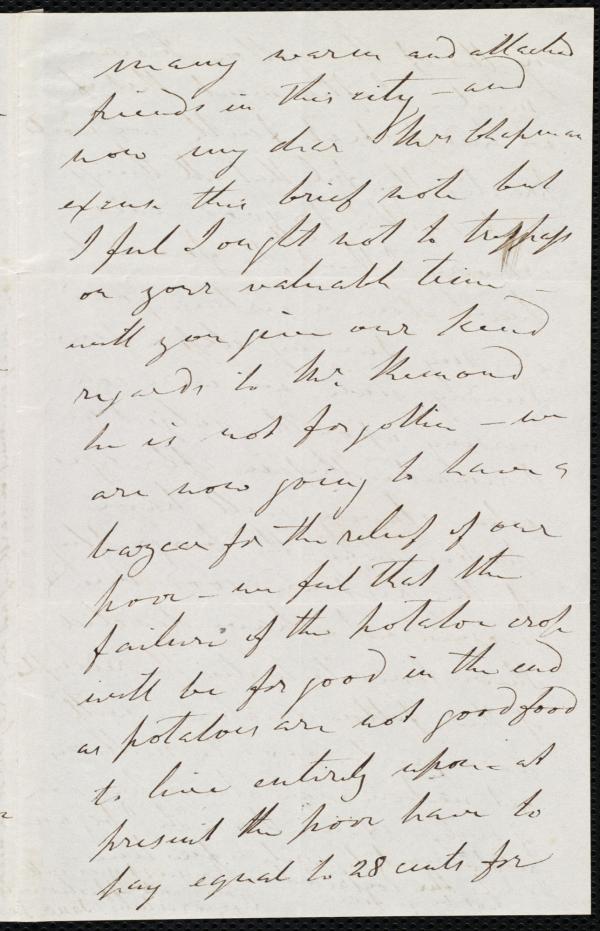 many warm and attached
friends in this city – and
now my dear Mrs Chapman
excuse this brief note but
I feel I ought not to trespass
on your valuable time –
will you give our kind
regards to Mr. Remond
he is not forgotten – we
are now going to have a
bazaar for the relief of our
poor – we feel that the
failure of the potatoe crop
will be for good in the end
as potatoes are not good food
to live entirely upon – at
present the poor have to
pay equal to 28 cents for